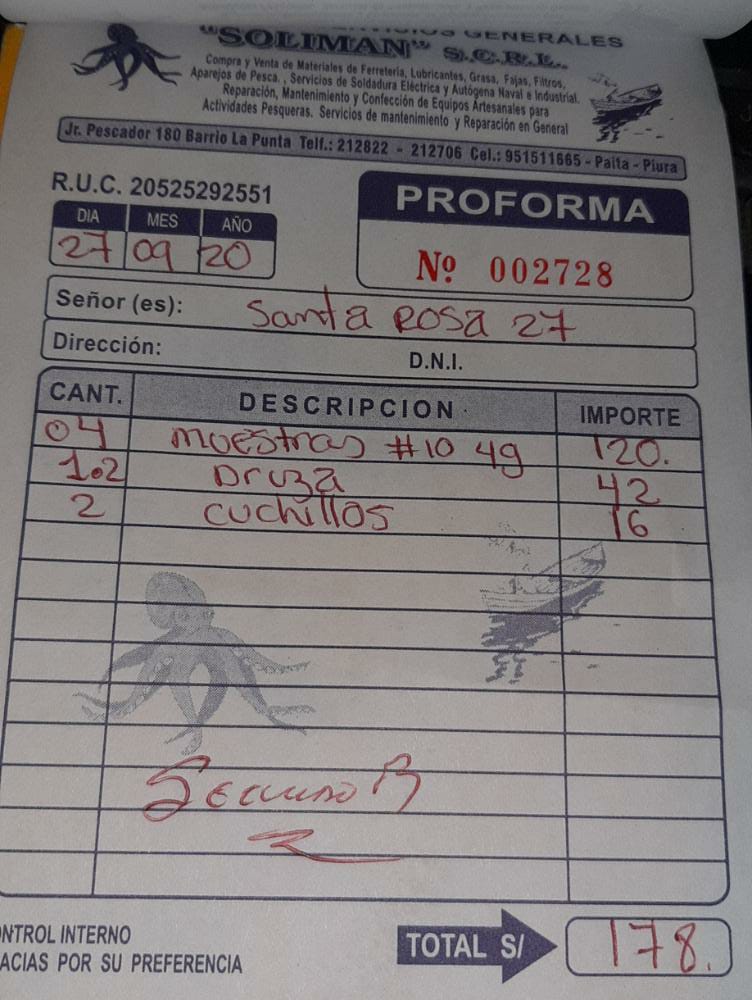 GENERALES
"SOLIMAN" S.C.R.L.
Compra y Venta de Materiales de Ferreteria, Lubricantes, Grasa, Fajas, Filtros,
Aparejos de Pesca. , Servicios de Soldadura Eléctrica y Autógena Naval e Industrial.
Reparación, Mantenimiento y Confección de Equipos Artesanales para
Actividades Pesqueras. Servicios de mantenimiento y Reparación en General
Jr. Pescador 180 Barrio La Punta Telf.: 212822 - 212706 Cel.: 951511665 - Paita - Piura
R.U.C. 20525292551
PROFORMA
DIA MES AÑO
27 09 20
Nº 002728
Señor (es): Santa Rosa 27
Dirección: D.N.I.
CANT. DESCRIPCION IMPORTE
04 muestras #10 49 120.
1.2 Druza 42
2 cuchillos 16
TOTAL S/ 178.
NTROL INTERNO
ACIAS POR SU PREFERENCIA